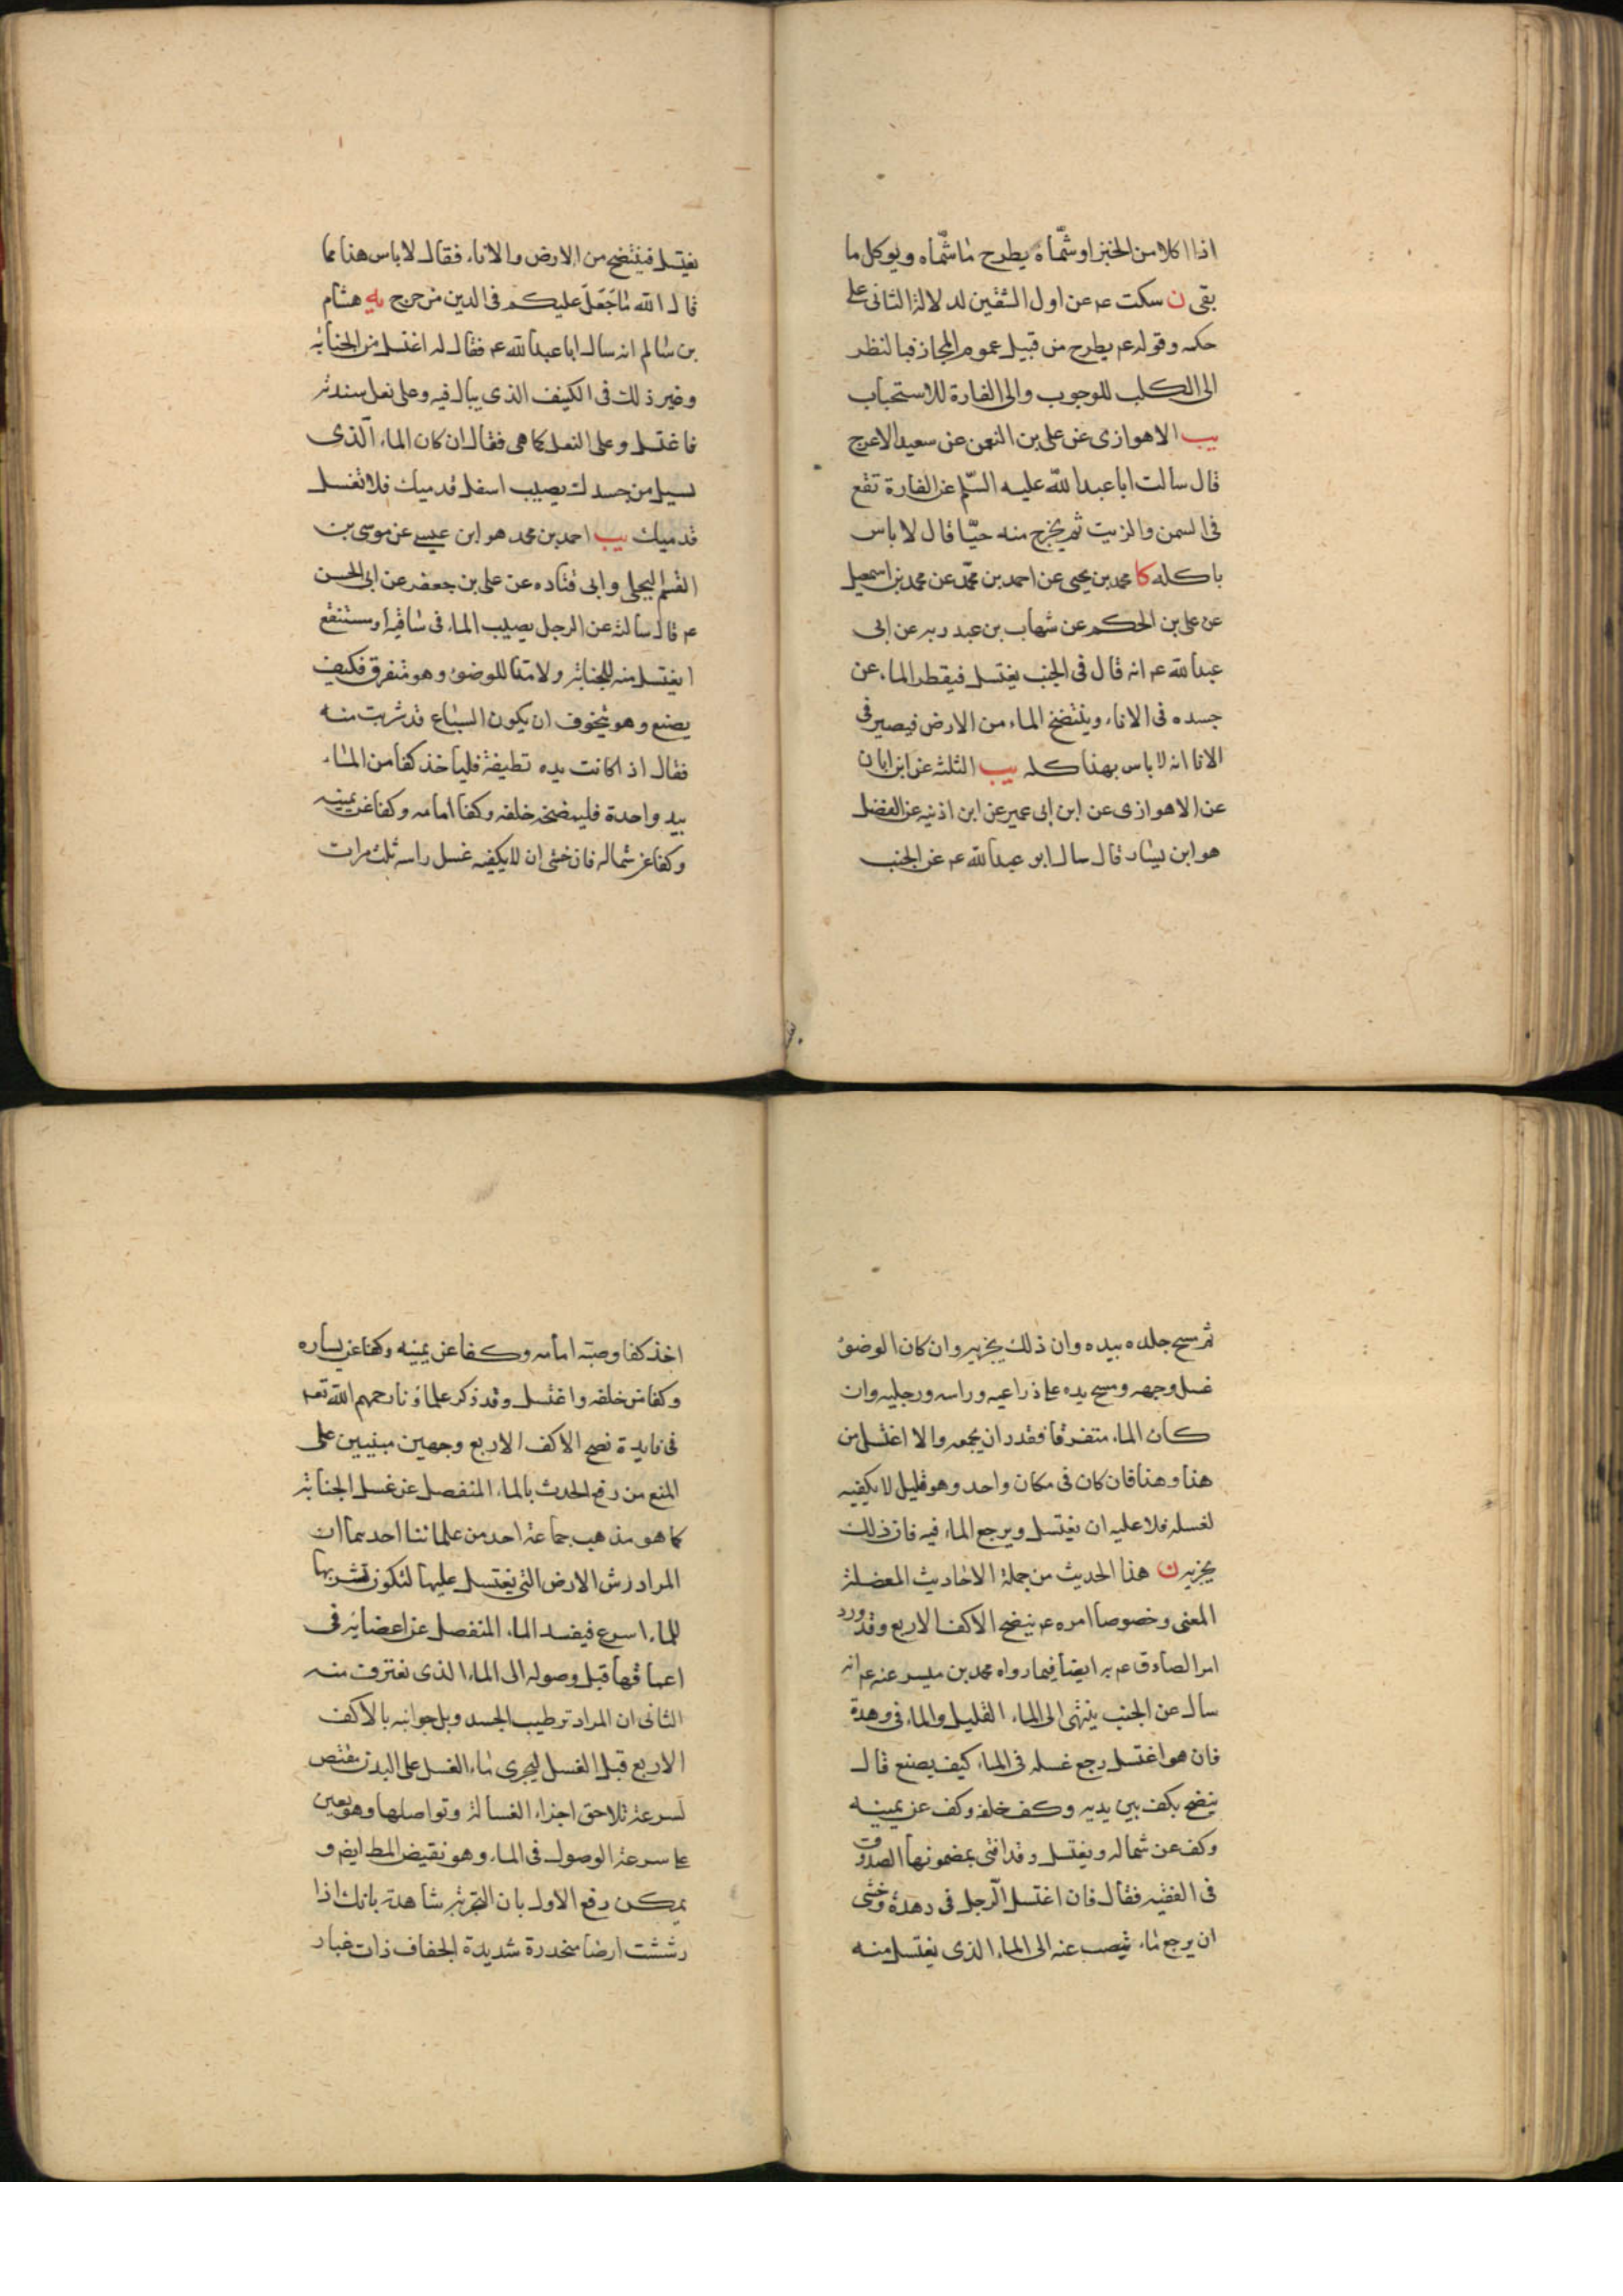 اذا اكلا من الخبز او شمّاه يطرح ما شمّاه ويوكل ما
بقى ن سكت عم عن اول الشقين لدلالة الثانى على
حكمه وقوله عم يطرح من قبيل عموم المجاز فبالنظر
الى الكلب للوجوب والى الفارة للاستحباب
يب الاهوازى عن على بن النعمن عن سعيد الاعرج
قال سالت ابا عبد الله عليه السّلم عن الفارة تقع
فى السمن والزيت ثم يخرج منه حيّا قال لا باس
باكله كا محمد بن يحيى عن احمد بن محمّد عن محمد بن اسمعيل
عن على بن الحكم عن شهاب بن عبد ربه عن ابى
عبد الله عم انه قال فى الجنب يغتسل فيقطر الماء عن
جسده فى الاناء وينتضخ الماء من الارض فيصير فى
الانا انه لا باس بهذا كله يب الثلثه عن ابن ابان
عن الاهوازى عن ابن ابى عمير عن ابن اذنيه عن الفضل
هو ابن يسار قال سال ابو عبد الله عم عن الجنب
يغتسل فينتضح من الارض والاناء فقال لا باس هذا مما
قال الله ما جَعَلَ عليكم فى الدين من حرج يه هشام
بن سالم انه سال ابا عبد الله عم فقال له اغتسل من الجنابة
وغير ذلك فى الكنيف الذى يبال فيه وعلى نعل سندية
فاغتسل وعلى النعل كما هى فقال ان كان الماء الّذى
لسيل من جسدك يصيب اسفل قدميك فلا تغسل
قدميك يب احمد بن محمد هو ابن عيسى عن موسى بن
القسم البجلى وابى قتاده عن على بن جعفر عن ابى الحسن
عم قال سالته عن الرجل يصيب الماء فى ساقية او مستنقع
ايغتسل منه للجنابة ولا متا للوضوء وهو متفرق فكيف
يصنع وهو يتخوف ان يكون السباع قد شربت منه
فقال اذا كانت يده نظيفة فلياخذ كفا من الماء
بيد واحدة فلينضحه خلفه وكفا امامه وكفا عن يمينه
وكفا عن شماله فان خشى ان لا يكفيه غسل راسه ثلث مرات
ثم مسح جلده بيده وان ذلك يجزيه وان كان الوضوء
غسل وجهه ومسح يده على ذراعيه وراسه ورجليه وان
كان الماء متفرقا فقدر ان يجمعه والا اغتسل من
هنا وهنا فان كان فى مكان واحد وهو قليل لا يكفيه
لغسله فلا عليه ان يغتسل ويرجع الماء فيه فان ذلك
يجزيه ن هذا الحديث من جملة الاحاديث المعضلة
المعنى وخصوصا امره عم بنضح الاكف الاربع وقد ورد
امر الصادق عم به ايضا فيما رواه محمد بن ميسر عنه عم انه
سال عن الجنب ينتهى الى الماء القليل والماء فى وهدة
فان هو اغتسل رجع غسله فى الماء كيف يصنع قال
ينضح بكف بين يديه وكف خلفه وكف عن يمينه
وكف عن شماله ويغتسل وقد افتى بمضمونها الصدوق
فى الفقيه فقال فان اغتسل الّرجل فى وهدة وخشى
ان يرجع ماء ينصب عنه الى الماء الذى يغتسل منه
اخذ كفا وصبّه امامه وكفا عن يمينه وكفا عن يساره
وكفا من خلفه واغتسل وقد ذكر علماؤنا رحمهم الله تعم
فى فايدة نضح الاكف الاربع وجهين مبنيين على
المنع من رفع الحدث بالماء المنفصل عن غسل الجنابة
كما هو مذهب جماعة احد من علمائنا احدهما ان
المراد رش الارض التى يغتسل عليها لتكون تشربها
للماء اسرع فيفسد الماء المنفصل عن اعضائه فى
اعماقها قبل وصوله الى الماء الذى نغترف منه
الثانى ان المراد ترطيب الجسد وبل جوانبه بالاكف
الاربع قبل الغسل ليجرى ماء الغسل على البدن
لسرعة تلاحق اجزاء الغسالة وتواصلها وهو يعين
على سرعة الوصول فى الماء وهو نقيض المط ايضم و
يمكن رفع الاول بان التجربة شاهدة بانك اذا
رششت ارضا منحدرة شديدة الجفاف ذات غبار